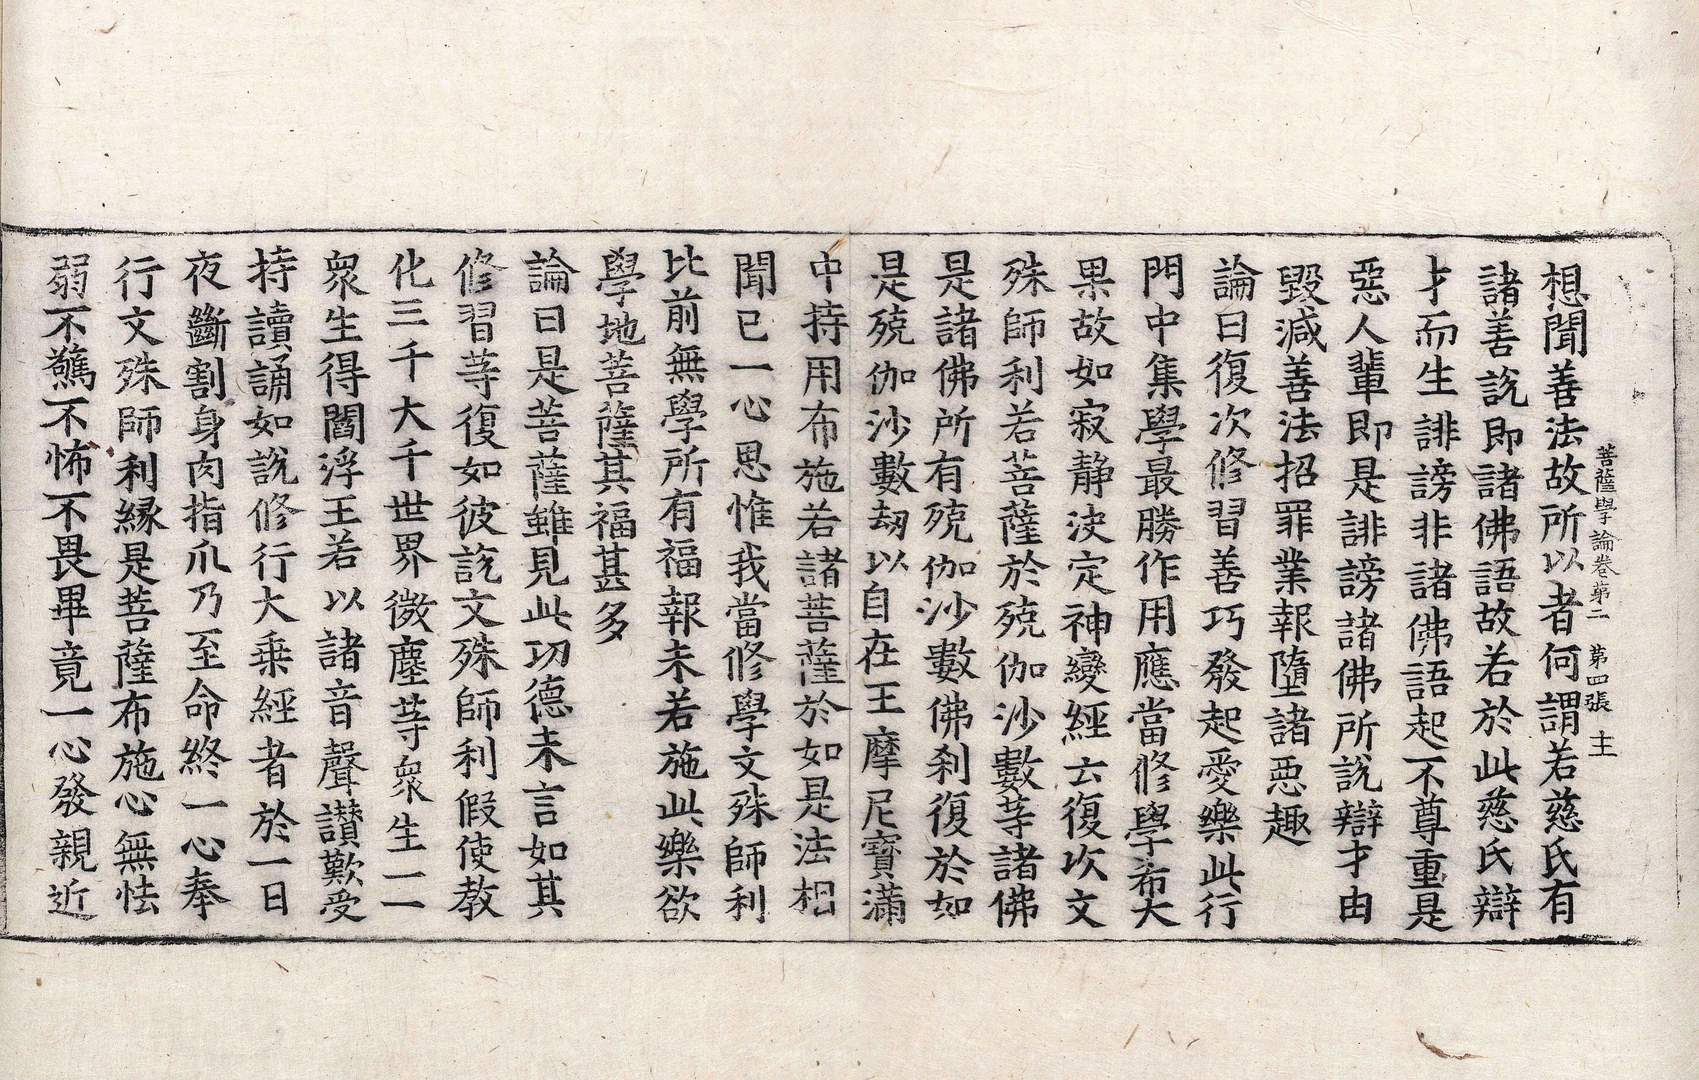 菩薩學論卷第二 第四張 主
想聞善法故所以者何謂若慈氏有
諸善說即諸佛語故若於此慈氏辯
才而生誹謗非諸佛語起不尊重是
惡人輩即是誹謗諸佛所說辯才由
毀滅善法招罪業報墮諸惡趣
論曰復次修習善巧發起愛樂此行
門中集學最勝作用應當修學希大
果故如寂靜決定神變經云復次文
殊師利若菩薩於殑伽沙數等諸佛
是諸佛所有殑伽沙數佛刹復於如
是殑伽沙數劫以自在王摩尼寶滿
中持用布施若諸菩薩於如是法相
聞已一心思惟我當修學文殊師利
比前無學所有福報未若施此樂欲
學地菩薩其福甚多
論曰是菩薩雖見此功德未言如其
修習等復如彼說文殊師利假使教
化三千大千世界微塵等衆生一一
衆生得閻浮王若以諸音聲讃歎受
持讀誦如說修行大乗經者於一日
夜斷割身肉指爪乃至命終一心奉
行文殊師利縁是菩薩布施心無怯
弱不驚不怖不畏畢竟一心發親近